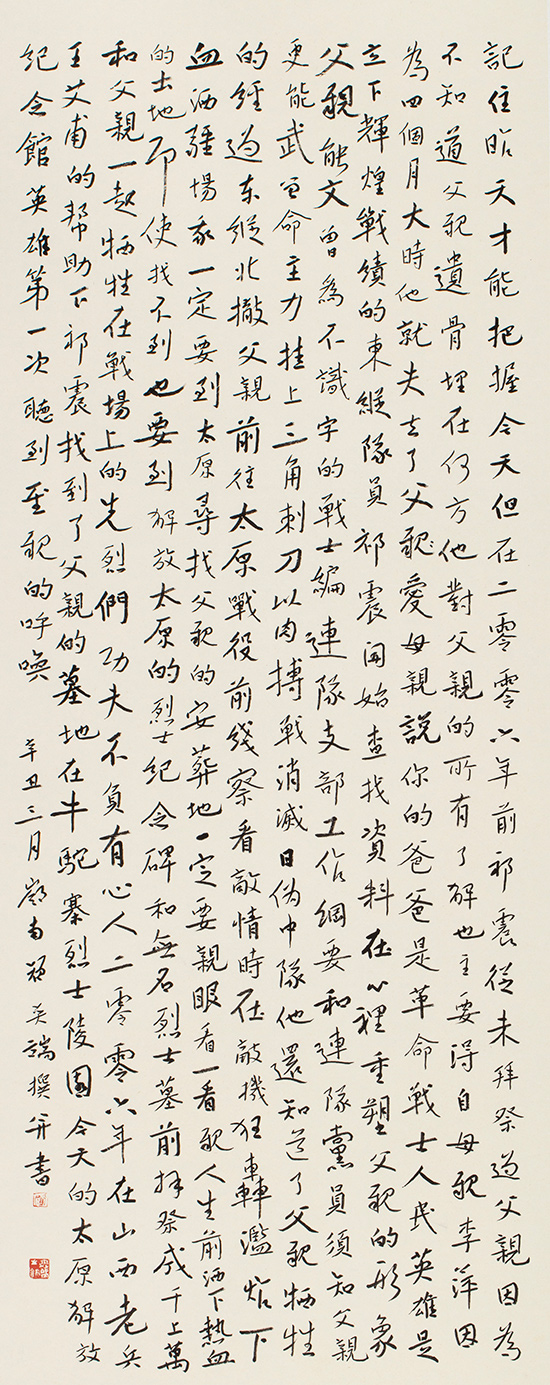 記住昨天才能把握今天但在二零零六年前祁震從未拜祭過父親因為
不知道父親遺骨埋在何方他對父親的所有了解也主要得自母親李萍因
為四個月大時他就失去了父親愛母親說你的爸爸是革命戰士人民英雄是
立下輝煌戰績的東縱隊員祁震開始查找資料在心裡重塑父親的形象
父親能文曾為不識字的戰士編連隊支部工作綱要和連隊黨員須知父親
更能武曾命主力挂上三角刺刀以肉搏戰消滅日偽中隊他還知道了父親犧牲
的經過東縱北撤父親前往太原戰役前线察看敵情時在敵機狂轟濫炸下
血洒疆場我一定要到太原尋找父親的安葬地一定要親眼看一看親人生前洒下熱血
的土地即使找不到也要到解放太原的烈士紀念碑和無名烈士墓前拜祭成千上萬
和父親一起犧牲在戰場上的先烈們功夫不負有心人二零零六年在山西老兵
王艾甫的幫助下祁震找到了父親的墓地在牛駝寨烈士陵園今天的太原解放
紀念館英雄第一次聽到至親的呼喚
辛丑三月嶺南 英端撰并書